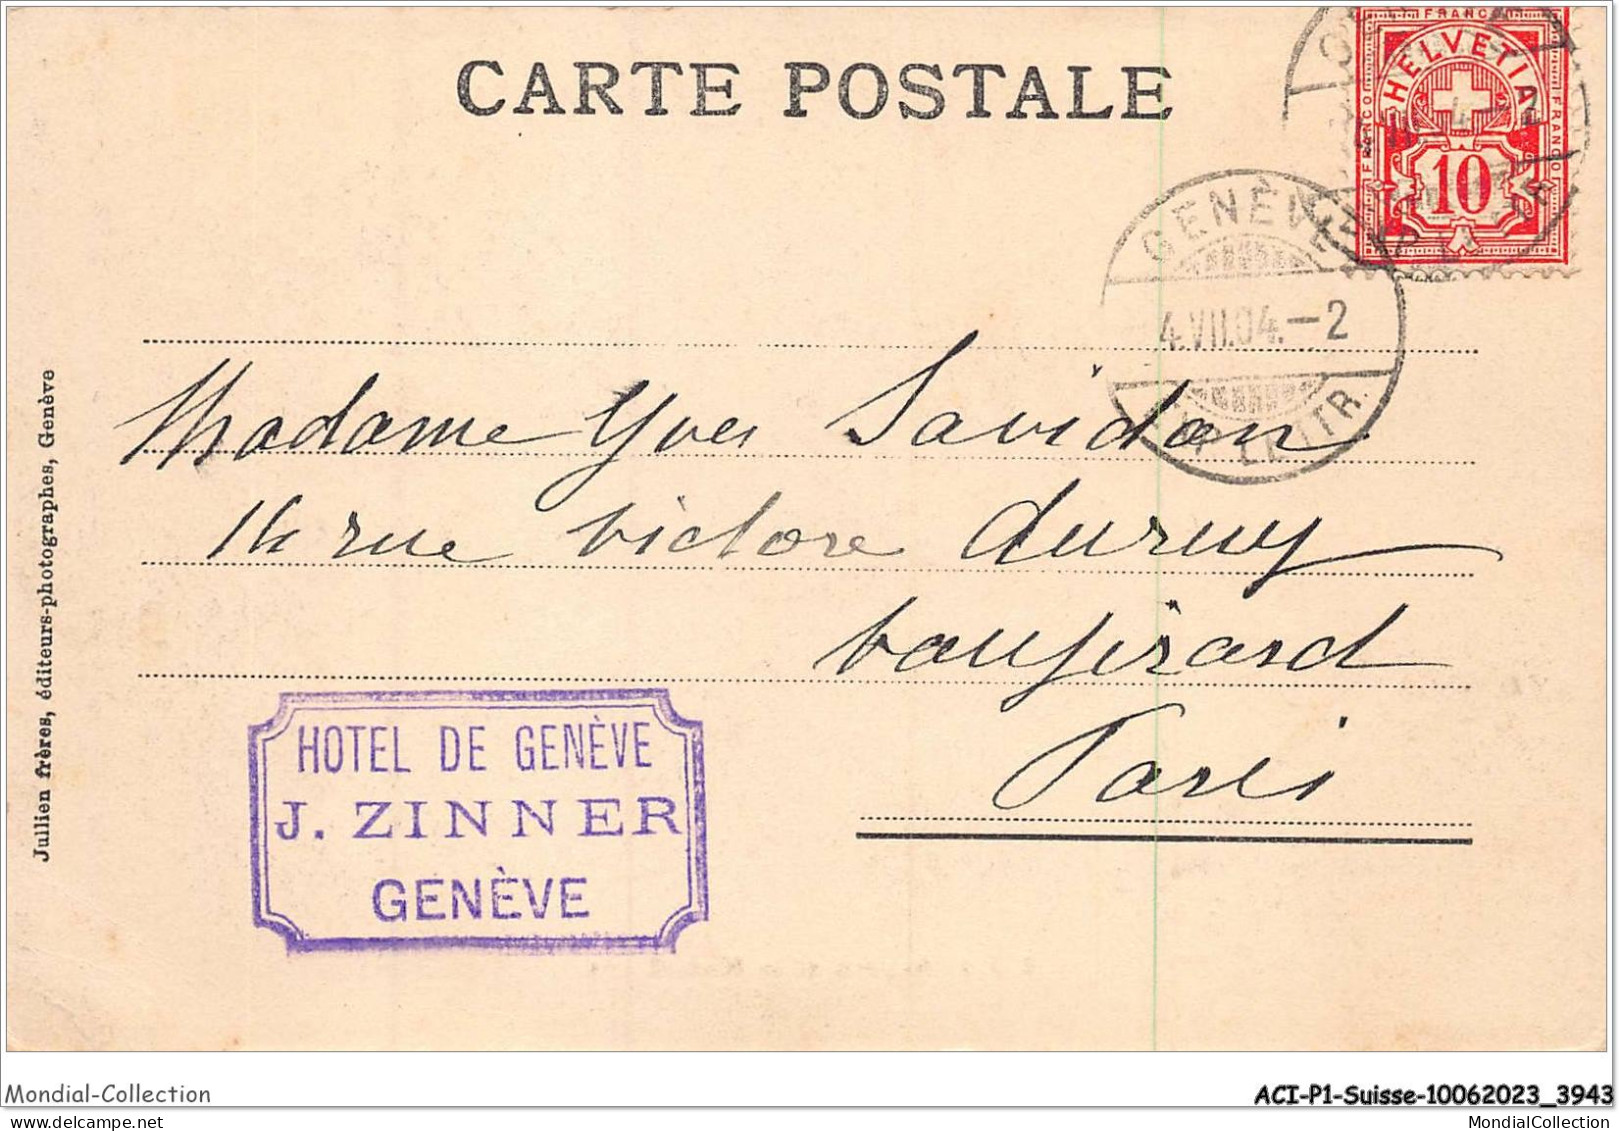 CARTE POSTALE
FRANCO
HELVETIA
FRANCO
FRANCO
10
GENÈVE
4.VII.04.–2
EXP. LETTR.
Madame Yves Savidan
14 rue victore duruy
vaugirard
Paris
HOTEL DE GENÈVE
J. ZINNER
GENÈVE
Jullien frères, éditeurs-photographes, Genève
Mondial-Collection
ACI-P1-Suisse-10062023_3943
MondialCollection